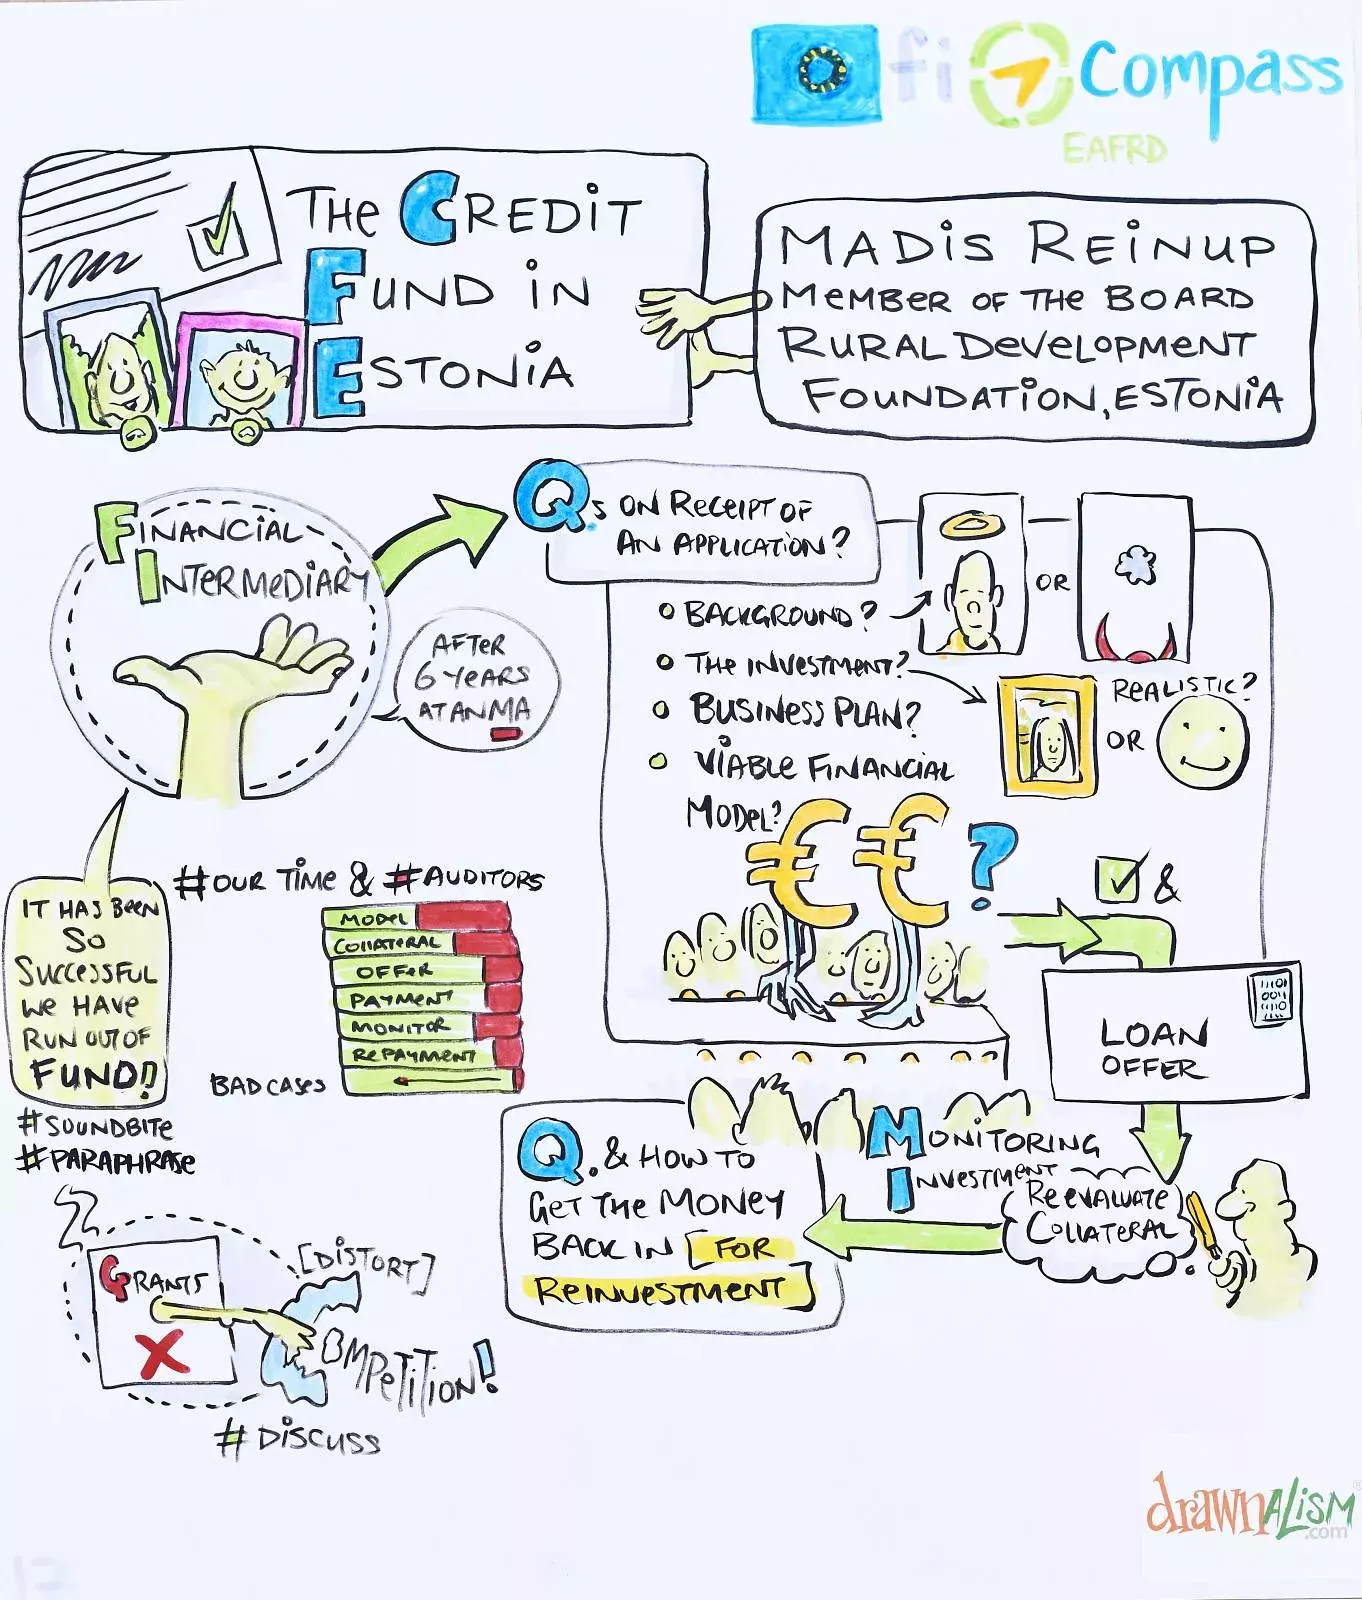 fi Compass
EAFRD
THE CREDIT
FUND IN
ESTONIA
MADIS REINUP
MEMBER OF THE BOARD
RURAL DEVELOPMENT
FOUNDATION, ESTONIA
FINANCIAL
INTERMEDIARY
AFTER
6 YEARS
AT ANMA
Qs ON RECEIPT OF
AN APPLICATION?
BACKGROUND?
OR
THE INVESTMENT?
REALISTIC?
OR
BUSINESS PLAN?
VIABLE FINANCIAL
MODEL?
€€?
&
LOAN
OFFER
IT HAS BEEN
SO
SUCCESSFUL
WE HAVE
RUN OUT OF
FUND!!
#SOUNDBITE
#PARAPHRASE
#OUR TIME & #AUDITORS
MODEL
COLLATERAL
OFFER
PAYMENT
MONITOR
REPAYMENT
BAD CASES
MONITORING
INVESTMENT
REEVALUATE
COLLATERAL
Q. & HOW TO
GET THE MONEY
BACK IN [FOR
REINVESTMENT]
GRANTS
X
[DISTORT]
COMPETITION!
#DISCUSS
drawnalism®
.com